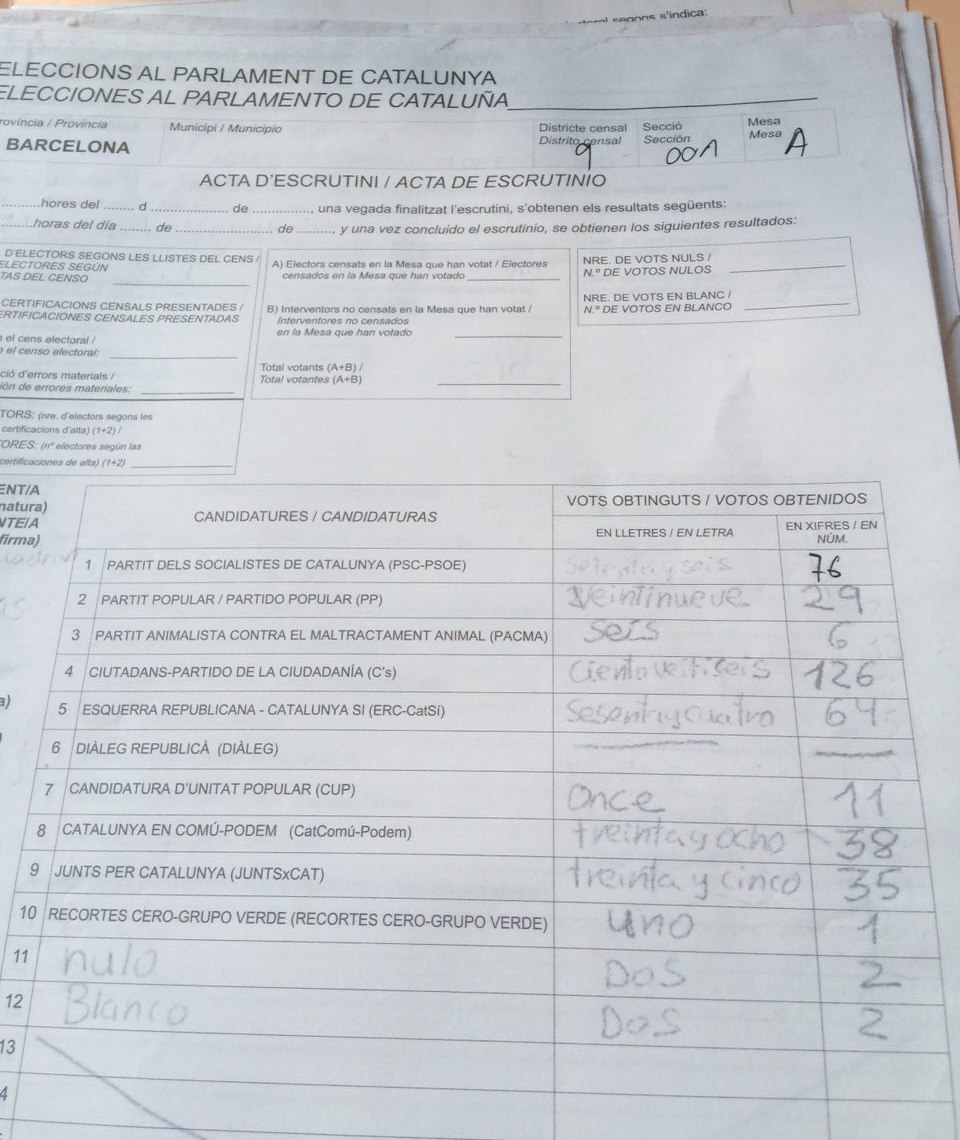 segons s'indica:
ELECCIONS AL PARLAMENT DE CATALUNYA
ELECCIONES AL PARLAMENTO DE CATALUÑA
rovíncia / Provincia
BARCELONA
Municipi / Municipio
Districte censal
Distrito censal
9
Secció
Sección
001
Mesa
Mesa
A
ACTA D'ESCRUTINI / ACTA DE ESCRUTINIO
..........hores del ........ d .................... de ..............., una vegada finalitzat l'escrutini, s'obtenen els resultats següents:
........horas del día ........ de ......................... de ........., y una vez concluido el escrutinio, se obtienen los siguientes resultados:
D'ELECTORS SEGONS LES LLISTES DEL CENS /
ELECTORES SEGÚN
TAS DEL CENSO
CERTIFICACIONS CENSALS PRESENTADES /
ERTIFICACIONES CENSALES PRESENTADAS
n el cens electoral /
n el censo electoral:
ció d'errors materials /
ión de errores materiales:
TORS: (nre. d'electors segons les
certificacions d'alta) (1+2) /
ORES: (nº electores según las
certificaciones de alta) (1+2)
A) Electors censats en la Mesa que han votat / Electores
censados en la Mesa que han votado
B) Interventors no censats en la Mesa que han votat /
Interventores no censados
en la Mesa que han votado
Total votants (A+B) /
Total votantes (A+B)
NRE. DE VOTS NULS /
N.º DE VOTOS NULOS
NRE. DE VOTS EN BLANC /
N.º DE VOTOS EN BLANCO
ENT/A
natura)
NTE/A
firma)
CANDIDATURES / CANDIDATURAS
VOTS OBTINGUTS / VOTOS OBTENIDOS
EN LLETRES / EN LETRA
EN XIFRES / EN
NÚM.
1 PARTIT DELS SOCIALISTES DE CATALUNYA (PSC-PSOE) Setenta y seis 76
2 PARTIT POPULAR / PARTIDO POPULAR (PP) Veintinueve 29
3 PARTIT ANIMALISTA CONTRA EL MALTRACTAMENT ANIMAL (PACMA) Seis 6
4 CIUTADANS-PARTIDO DE LA CIUDADANÍA (C's) Ciento veitiseis 126
5 ESQUERRA REPUBLICANA - CATALUNYA SI (ERC-CatSí) Sesenta y cuatro 64
6 DIÀLEG REPUBLICÀ (DIÀLEG)
7 CANDIDATURA D'UNITAT POPULAR (CUP) Once 11
8 CATALUNYA EN COMÚ-PODEM (CatComú-Podem) treinta y ocho 38
9 JUNTS PER CATALUNYA (JUNTSxCAT) treinta y cinco 35
10 RECORTES CERO-GRUPO VERDE (RECORTES CERO-GRUPO VERDE) uno 1
11 nulo Dos 2
12 Blanco Dos 2
13
4